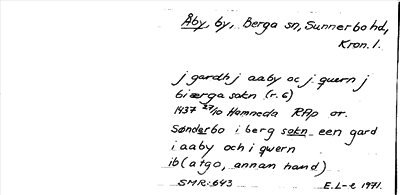 Åby, by, Berga sn, Sunnerbo hd,
Kron. l.
j gardh j aaby oc j quern j
biærga sokn (r. 6)
1437 27/10 Hamneda RAp or.
Sønderbo i berg sokn een gard
i aaby och i qwern
ib (atgo, annan hand)
SMR: 643 E. L-e 1971.